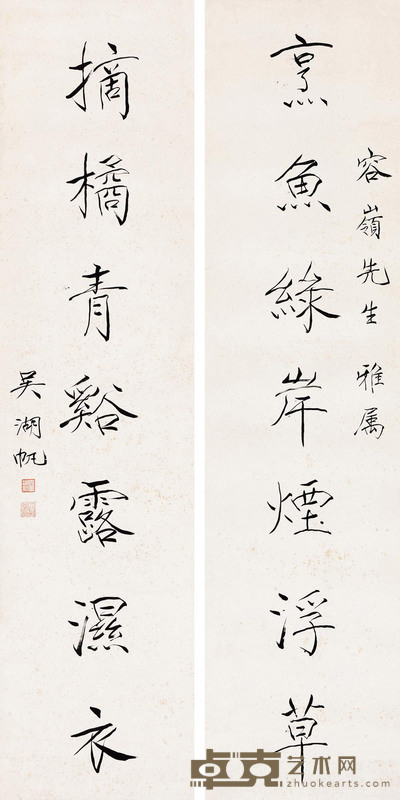 容嶺先生 雅属
烹魚綠岸煙浮草
摘橘青谿露濕衣
吳湖帆
卓克艺术网
zhuokearts.com